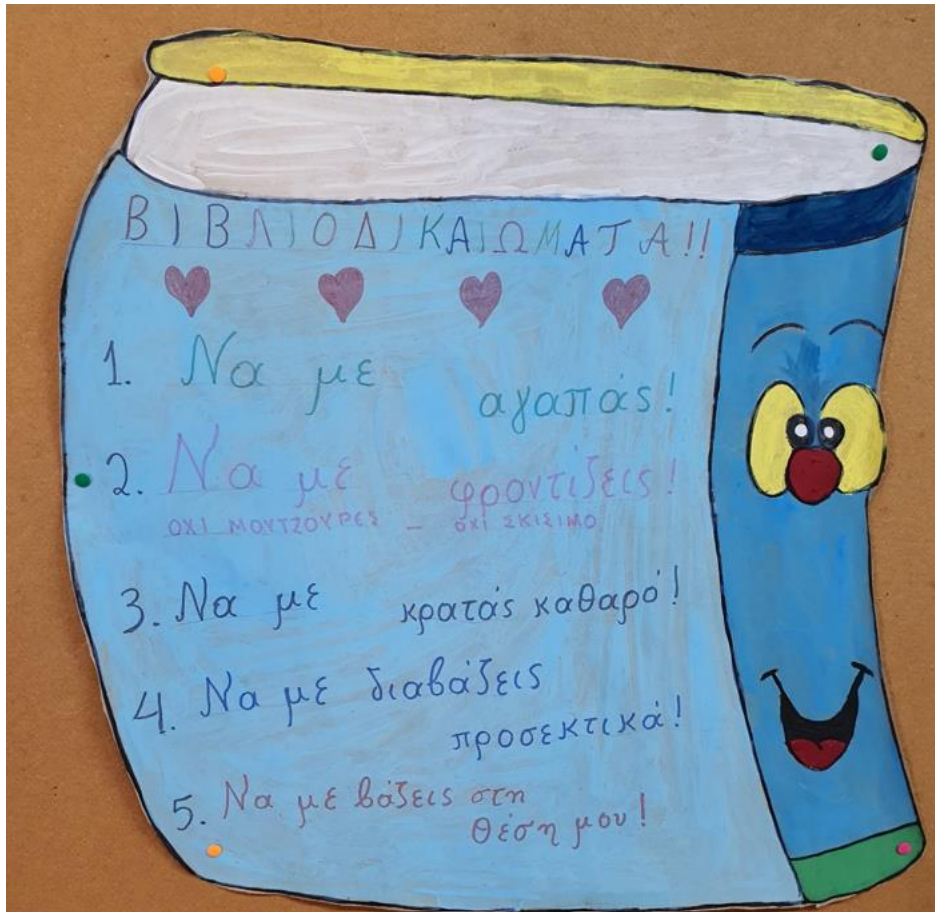 ΒΙΒΛΙΟΔΙΚΑΙΩΜΑΤΑ!!
1. Να με αγαπάς!
2. Να με φροντίζεις!
ΟΧΙ ΜΟΥΤΖΟΥΡΕΣ - ΟΧΙ ΣΚΙΣΙΜΟ
3. Να με κρατάς καθαρό!
4. Να με διαβάζεις
προσεκτικά!
5. Να με βάζεις στη
θέση μου!